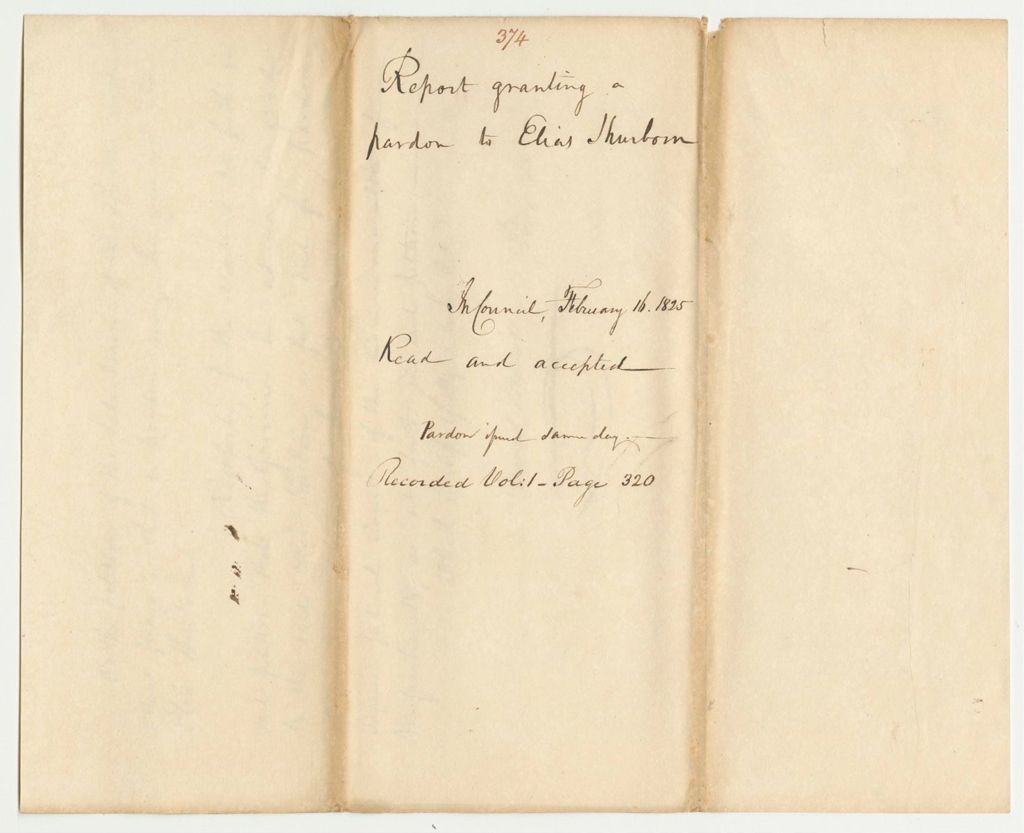 374
Report granting a
pardon to Elias Thurbom
In Council, February 16. 1825
Read and accepted
Pardon issued same day.
Recorded Vol: 1 - Page 320